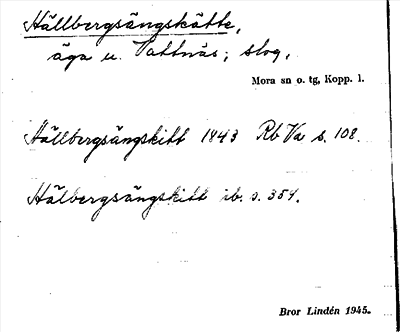 Hällbergsängskätte,
äga u. Vattnäs; slog,
Mora sn o. tg, Kopp. l.
Hällbergsängskitt 1843 Rb Va s. 108.
Hälbergsängskitt ib. s. 354.
Bror Lindén 1945.